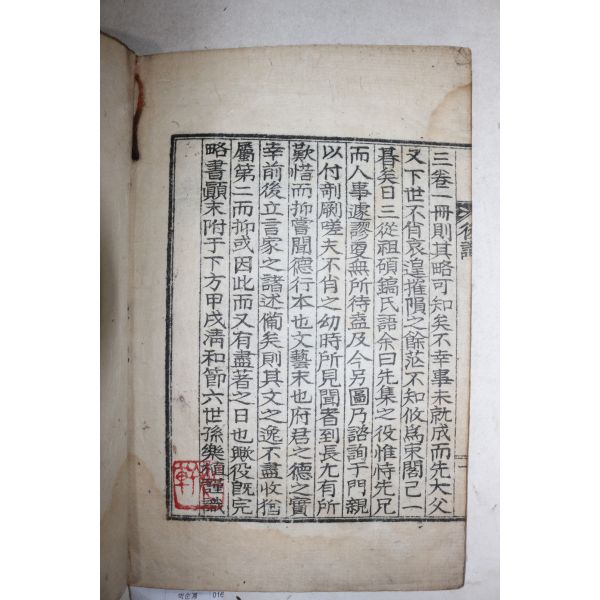 三卷一冊則其略可知矣不幸事未就成而先大父
又下世不肖哀遑摧隕之餘茫不知攸爲束閣已一
朞矣日三從祖碩鎬氏語余曰先集之役惟恃先兄
而人事遽謬夏無所待盍及今另圖乃諮詢于門親
以付剞劂嗟夫不肖之幼時所見聞者到長尤有所
歎惜而抑嘗聞德行本也文藝末也府君之德之實
幸前後立言家之諸述備矣則其文之逸不盡收猶
屬第二而抑或因此而又有盡著之日也歟役旣完
略書顚末附于下方甲戌淸和節六世孫樂植謹識
後識
一
016